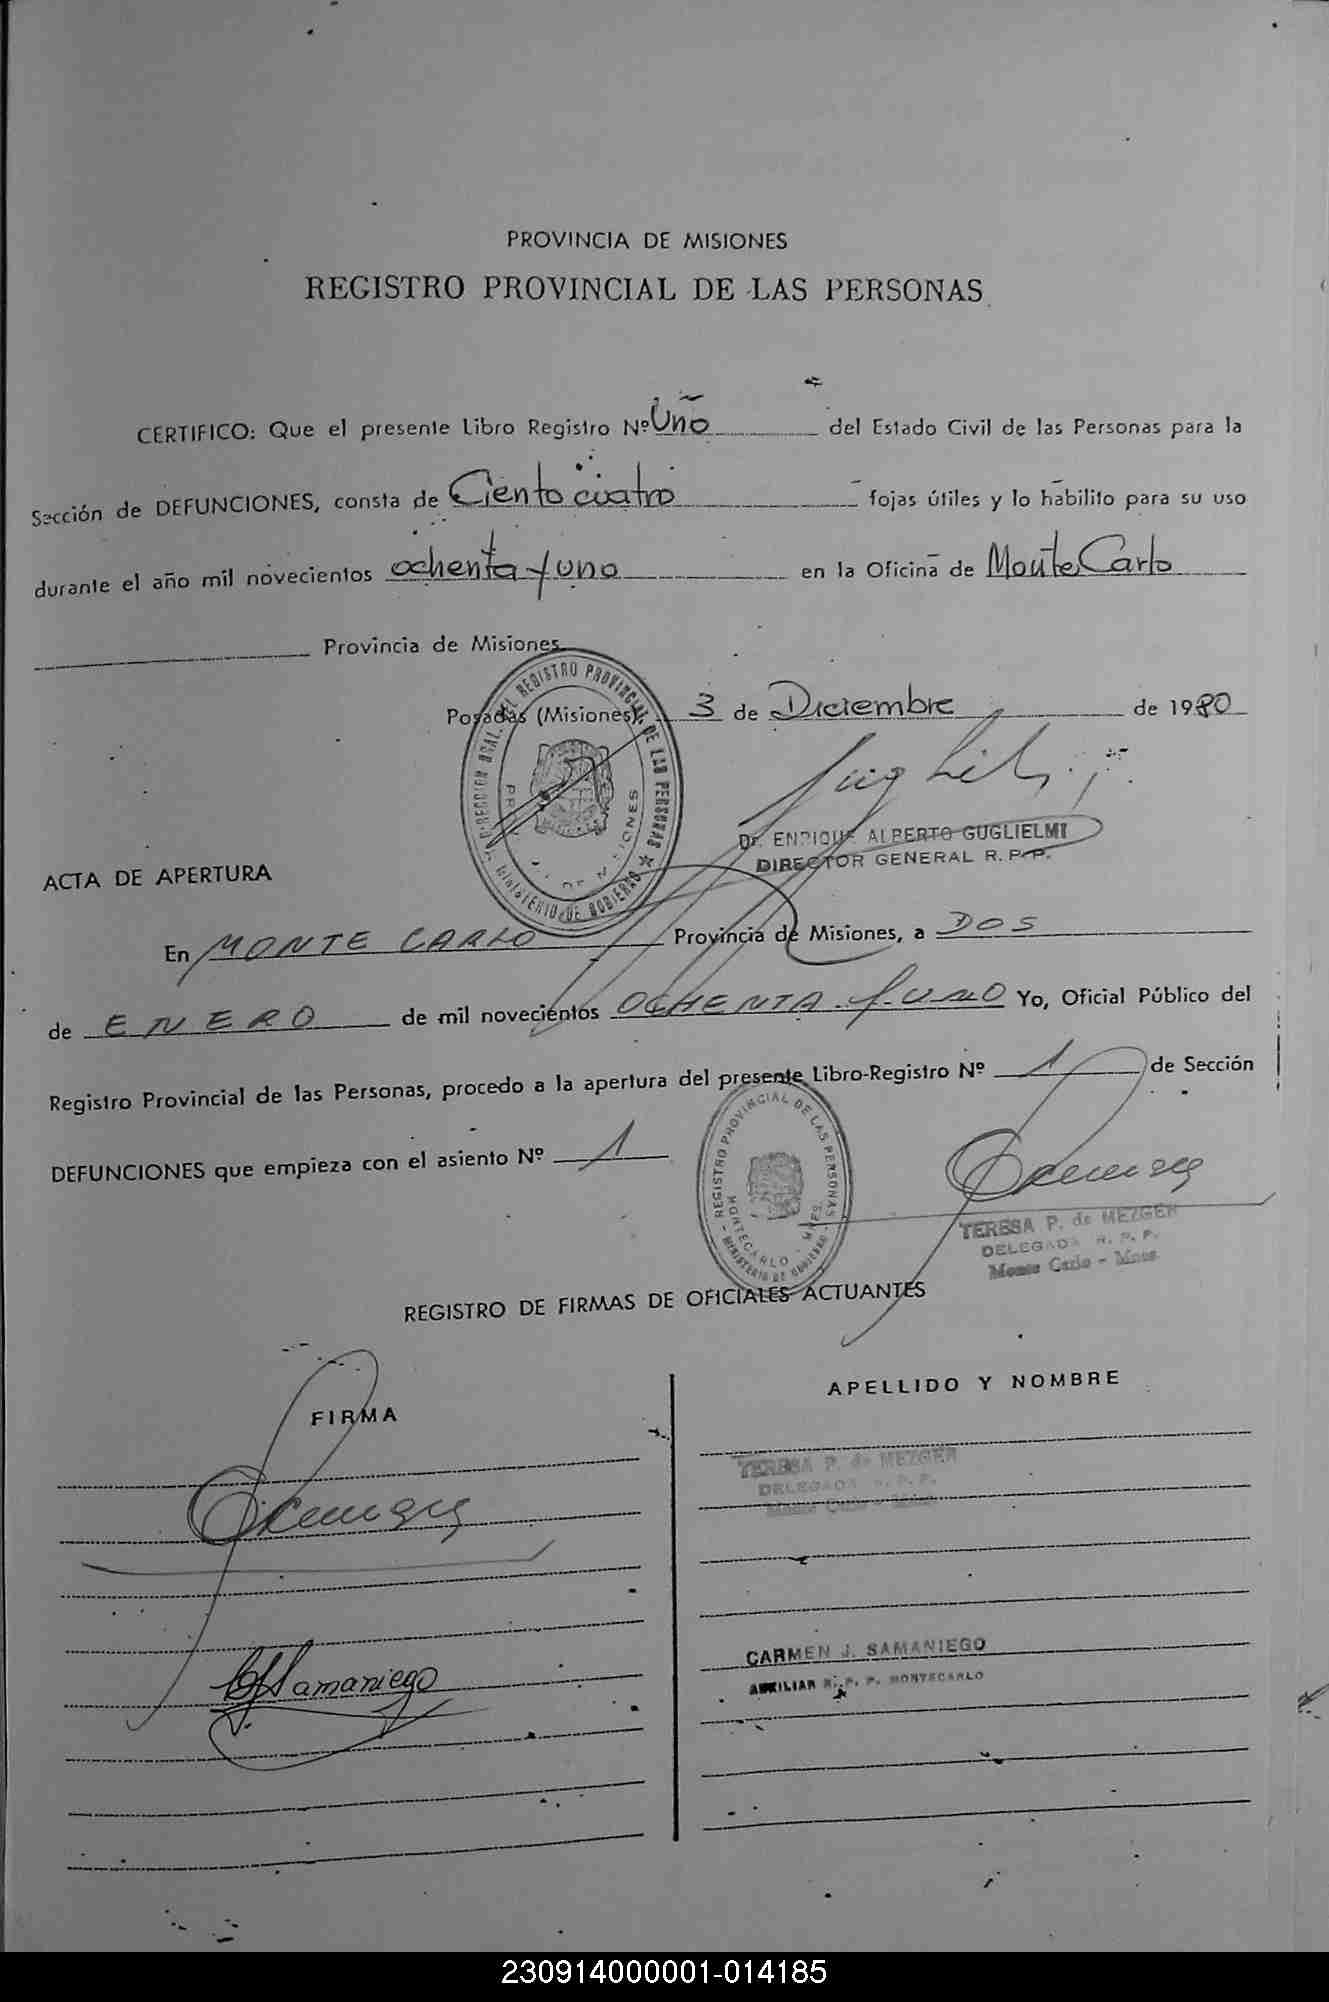 PROVINCIA DE MISIONES
REGISTRO PROVINCIAL DE LAS PERSONAS
CERTIFICO: Que el presente Libro Registro Nº Uno del Estado Civil de las Personas para la
Sección de DEFUNCIONES, consta de Ciento cuatro fojas útiles y lo habilito para su uso
durante el año mil novecientos ochenta y uno en la Oficina de Monte Carlo
Provincia de Misiones
Posadas (Misiones), 3 de Diciembre de 1980
DIRECCION GRAL. DEL REGISTRO PROVINCIAL DE LAS PERSONAS
MINISTERIO DE GOBIERNO
Dr. ENRIQUE ALBERTO GUGLIELMI
DIRECTOR GENERAL R. P. P.
ACTA DE APERTURA
En MONTE CARLO Provincia de Misiones, a DOS
de ENERO de mil novecientos OCHENTA Y UNO Yo, Oficial Público del
Registro Provincial de las Personas, procedo a la apertura del presente Libro-Registro Nº 1 de Sección
DEFUNCIONES que empieza con el asiento Nº 1
REGISTRO PROVINCIAL DE LAS PERSONAS
MONTECARLO - MNES.
MINISTERIO DE GOBIERNO
TERESA P. de MEZGER
DELEGADA R. P. P.
Monte Carlo - Mnes
REGISTRO DE FIRMAS DE OFICIALES ACTUANTES
FIRMA
APELLIDO Y NOMBRE
TERESA P. de MEZGER
DELEGADA R. P. P.
Monte Carlo - Mnes
Samaniego
CARMEN J. SAMANIEGO
AUXILIAR R. P. P. MONTECARLO
230914000001-014185